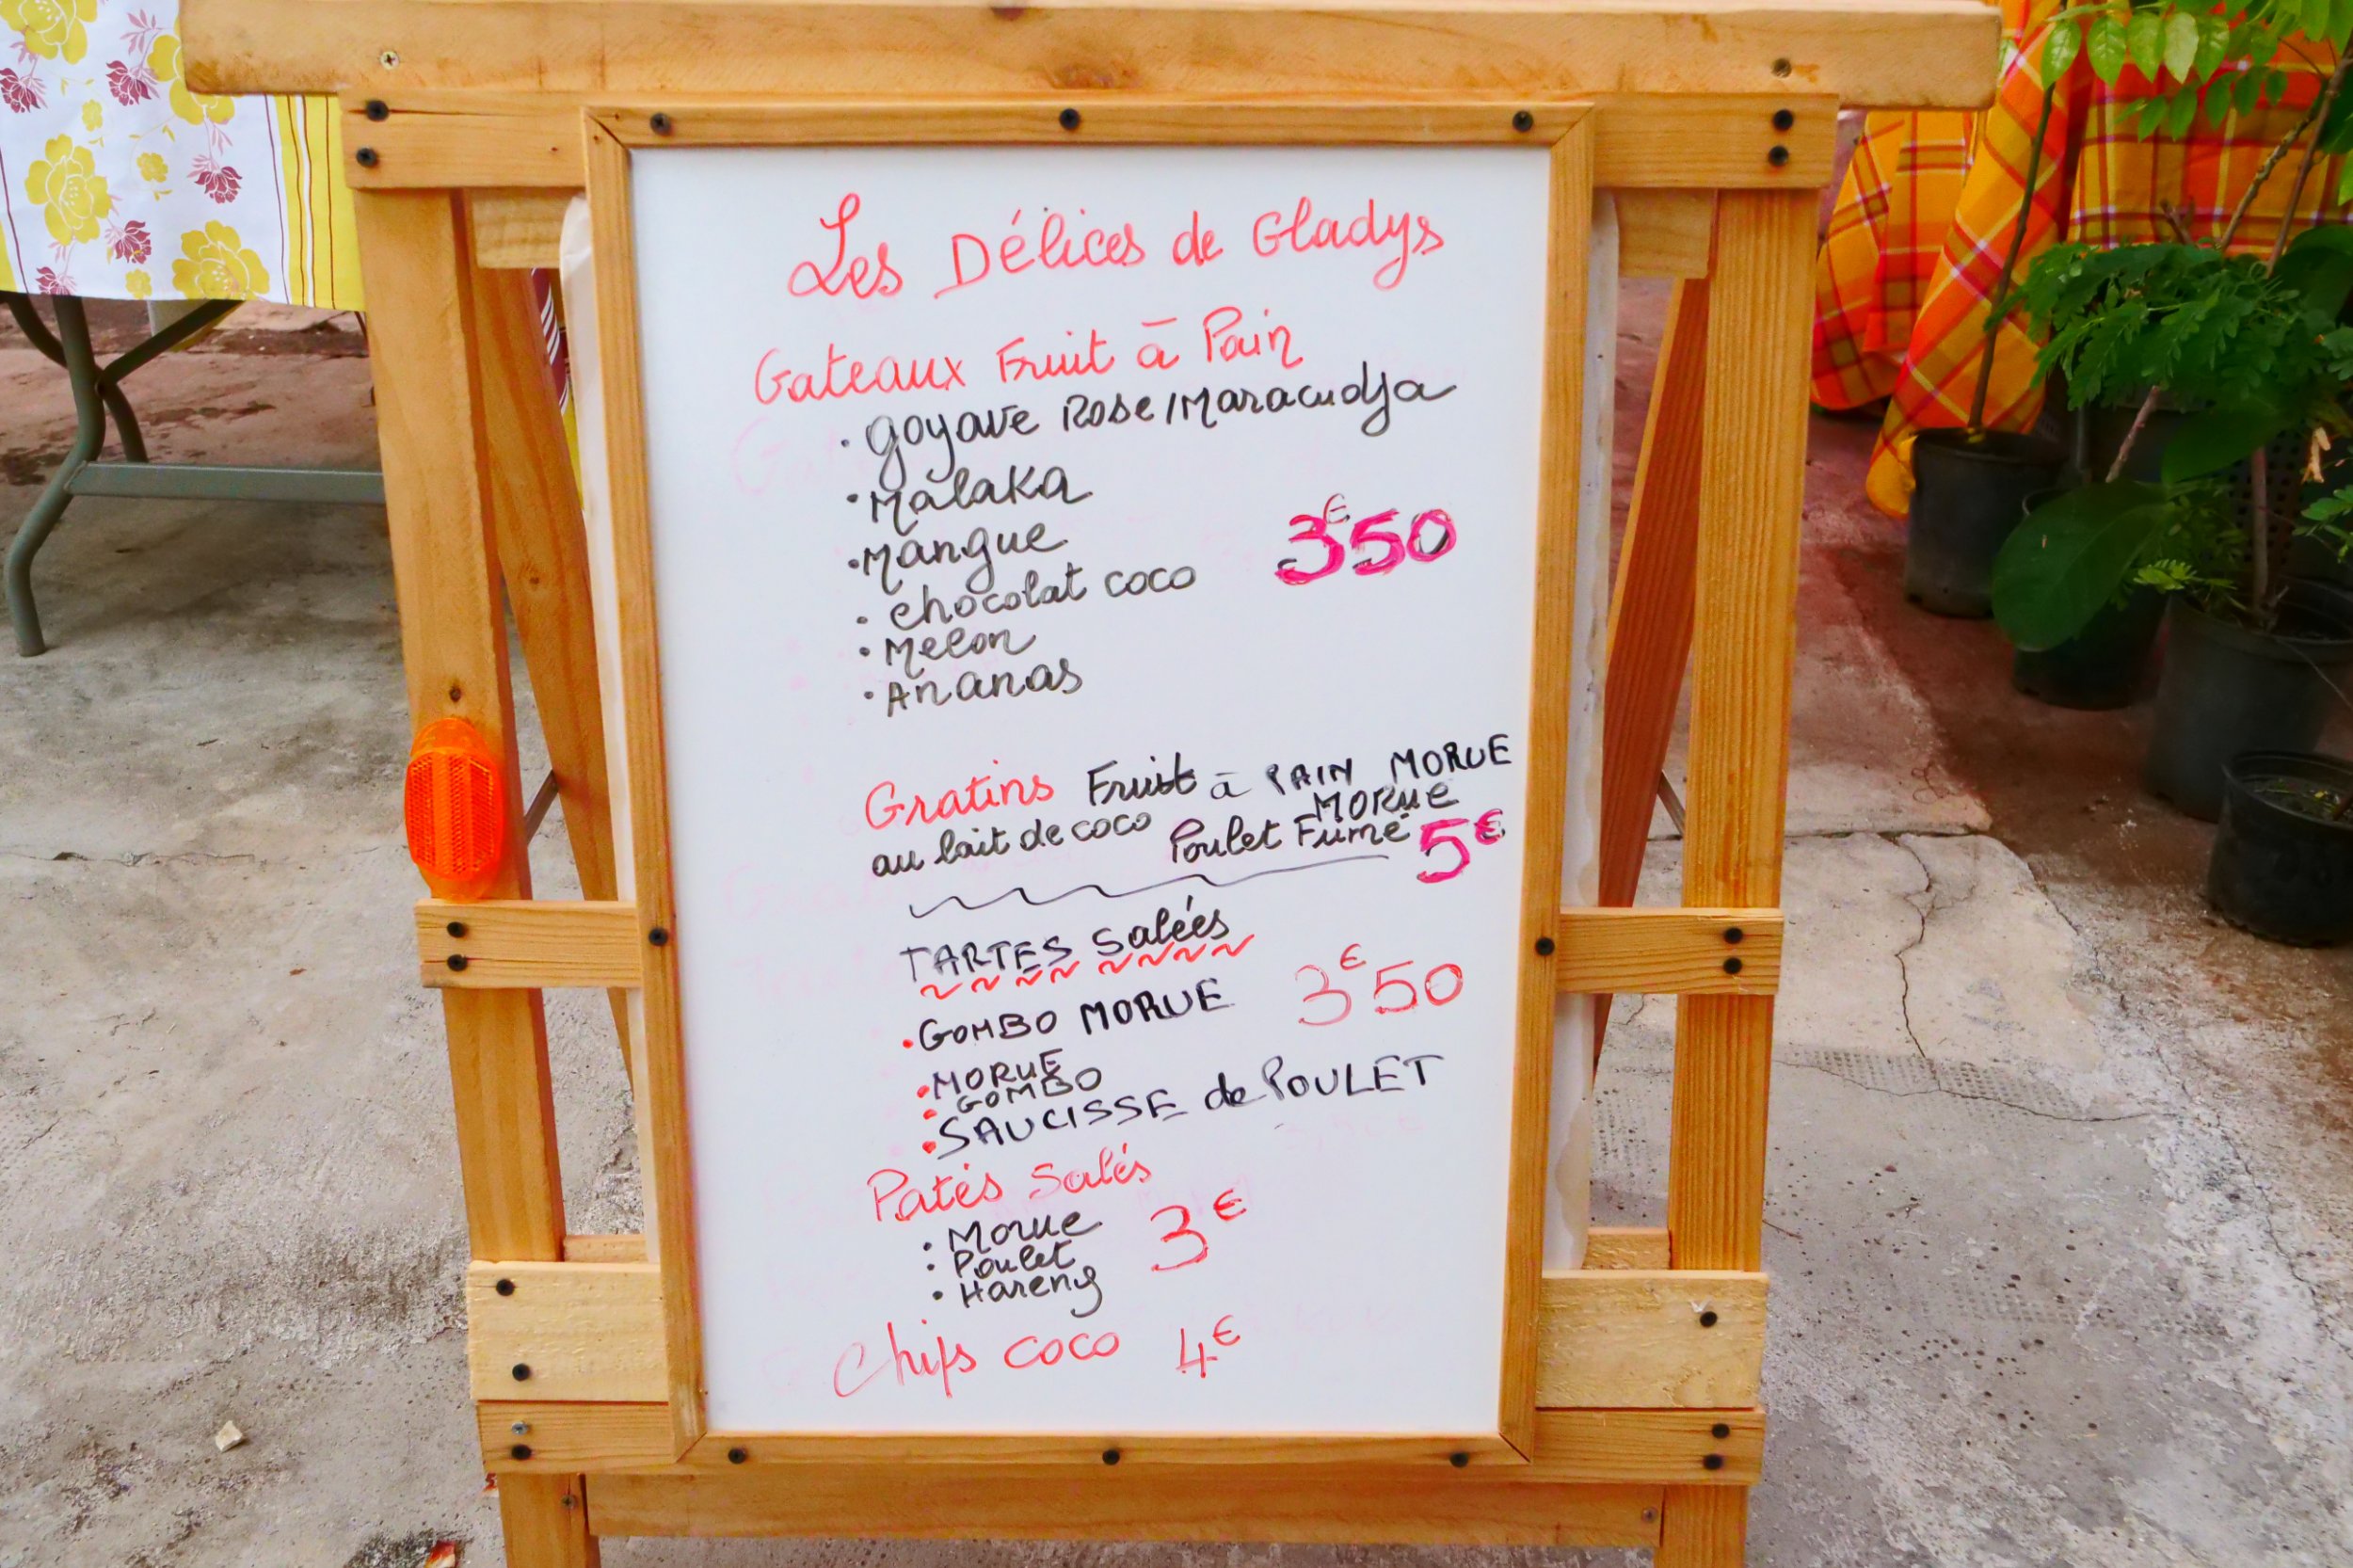 Les Délices de Gladys
Gateaux Fruit à Pain
• Goyave Rose/Maracudja
• Malaka
• Mangue
3€50
• chocolat coco
• Melon
• Ananas
Gratins Fruit à PAIN MORUE
MORUE
au lait de coco Poulet Fumé 5€
TARTES Salées
• GOMBO MORUE 3€50
• MORUE
• GOMBO
• SAUCISSE de POULET
Patés Salés
• Morue 3€
• Poulet
• Hareng
Chips coco 4€